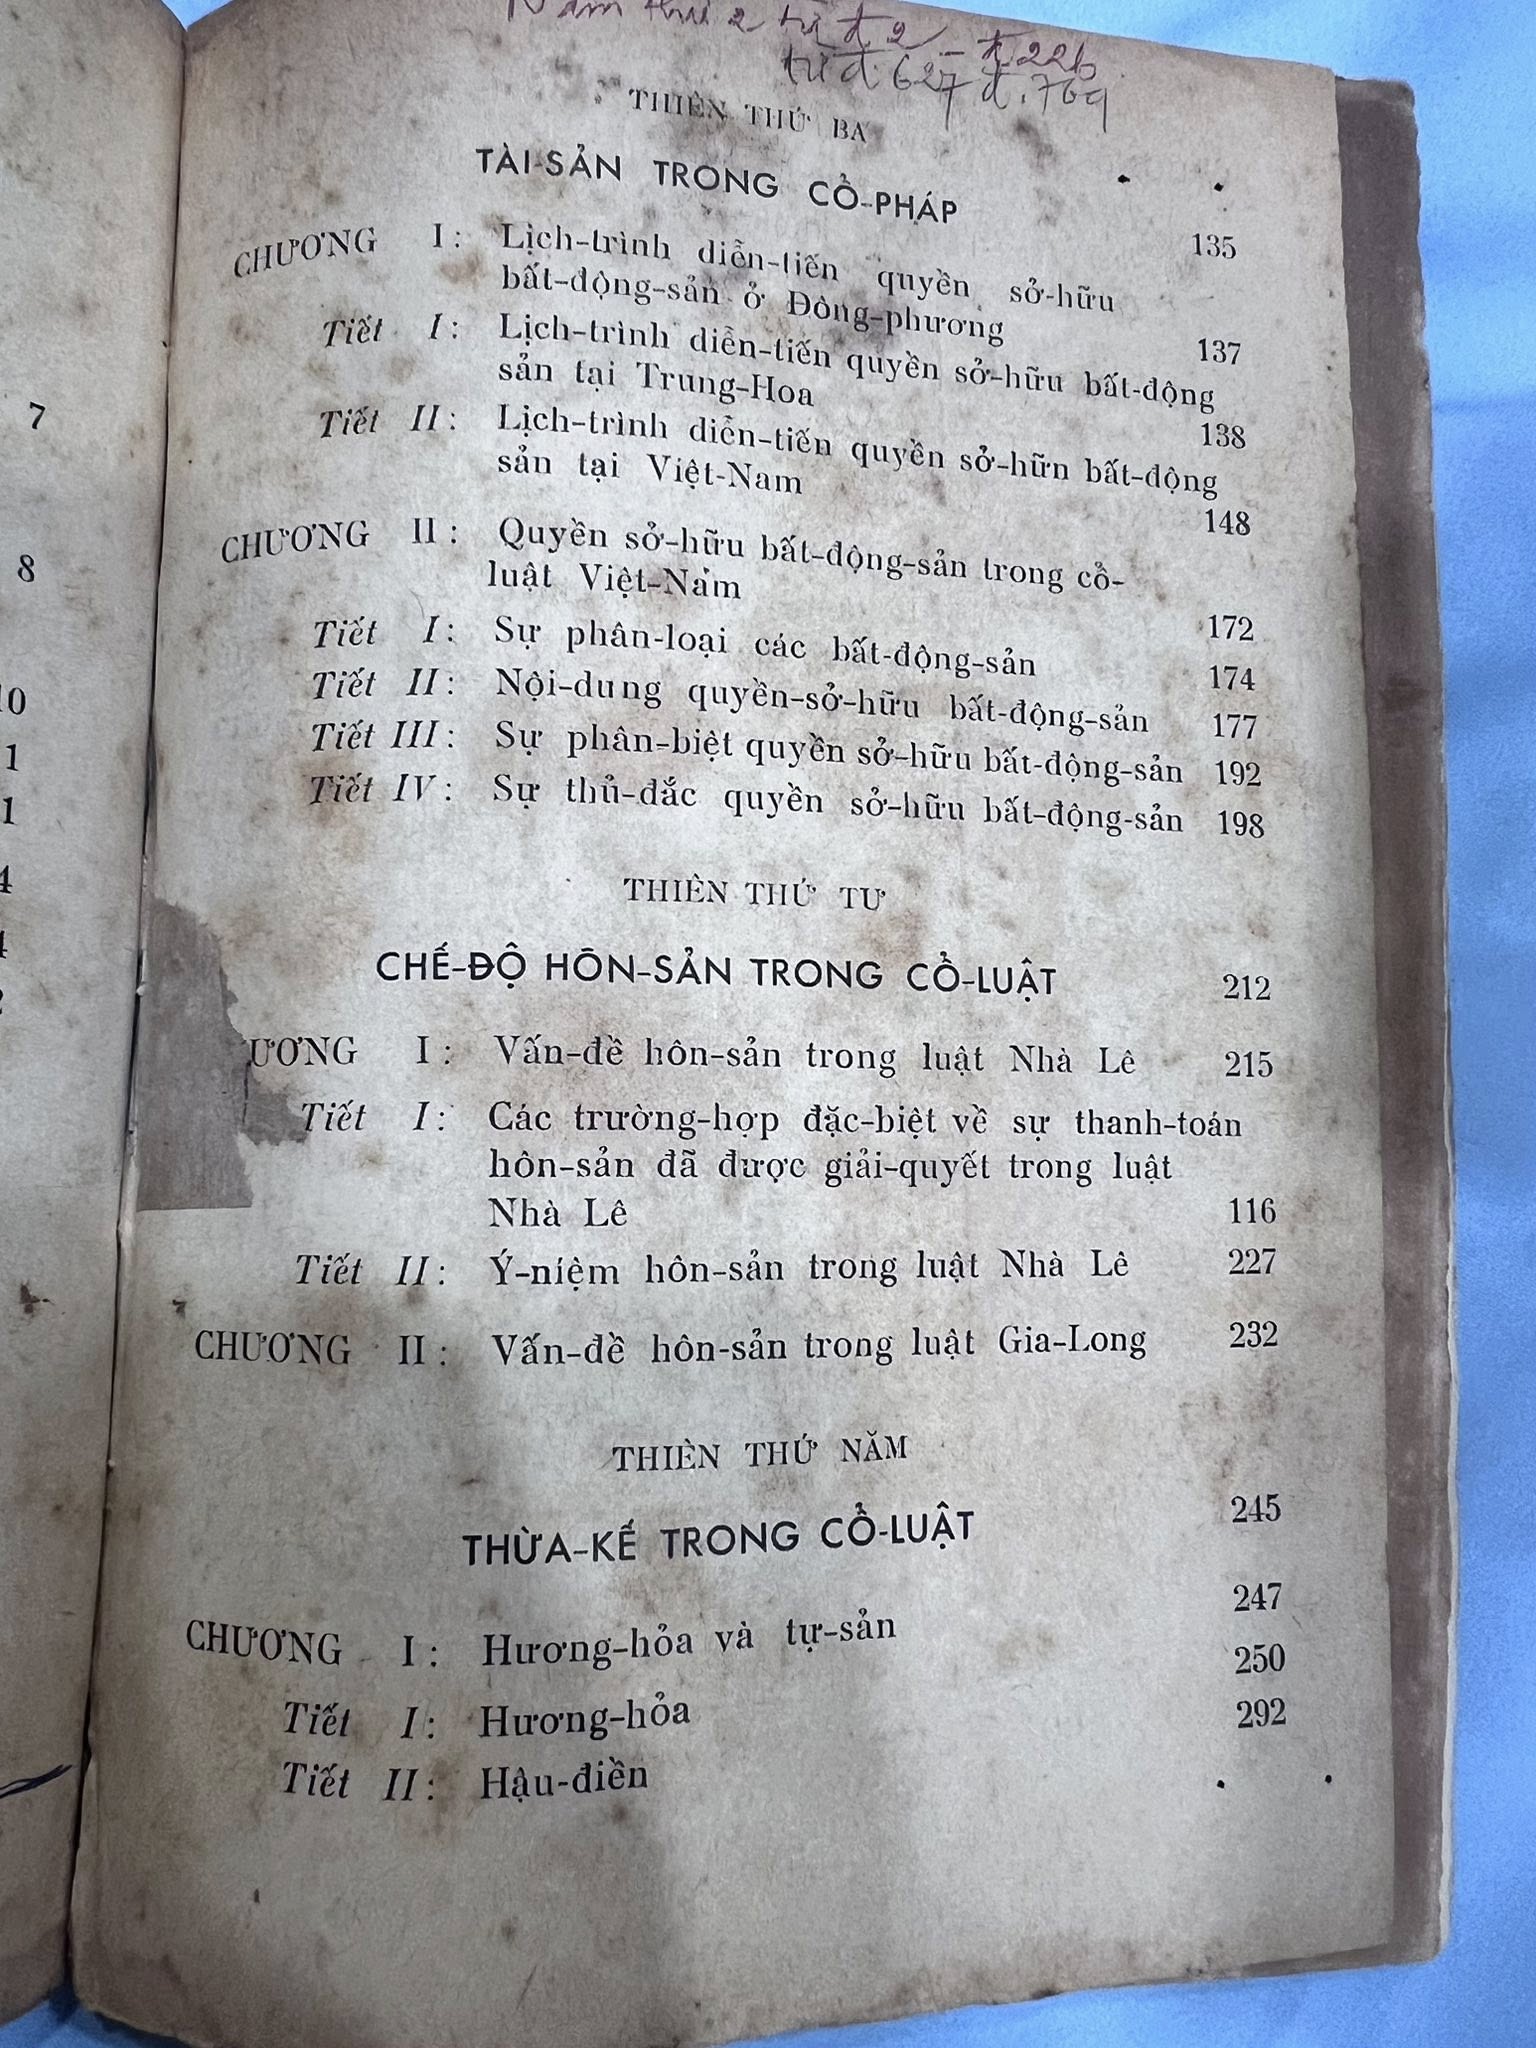 Năm thứ 2 từ đ 2 - đ 226
từ đ. 627 đ. 769
THIÊN THỨ BA
TÀI-SẢN TRONG CỔ-PHÁP 135
CHƯƠNG I : Lịch-trình diễn-tiến quyền sở-hữu
bất-động-sản ở Đông-phương 137
Tiết I : Lịch-trình diễn-tiến quyền sở-hữu bất-động
sản tại Trung-Hoa 138
Tiết II : Lịch-trình diễn-tiến quyền sở-hữn bất-động
sản tại Việt-Nam 148
CHƯƠNG II : Quyền sở-hữu bất-động-sản trong cổ-
luật Việt-Nam 172
Tiết I : Sự phân-loại các bất-động-sản 174
Tiết II : Nội-dung quyền-sở-hữu bất-động-sản 177
Tiết III : Sự phân-biệt quyền sở-hữu bất-động-sản 192
Tiết IV : Sự thủ-đắc quyền sở-hữu bất-động-sản 198
THIÊN THỨ TƯ
CHẾ-ĐỘ HÔN-SẢN TRONG CỔ-LUẬT 212
ƯƠNG I : Vấn-đề hôn-sản trong luật Nhà Lê 215
Tiết I : Các trường-hợp đặc-biệt về sự thanh-toán
hôn-sản đã được giải-quyết trong luật
Nhà Lê 116
Tiết II : Ý-niệm hôn-sản trong luật Nhà Lê 227
CHƯƠNG II : Vấn-đề hôn-sản trong luật Gia-Long 232
THIÊN THỨ NĂM
THỪA-KẾ TRONG CỔ-LUẬT 245
CHƯƠNG I : Hương-hỏa và tự-sản 247
Tiết I : Hương-hỏa 250
Tiết II : Hậu-điền 292
7
8
10
1
1
4
4
2